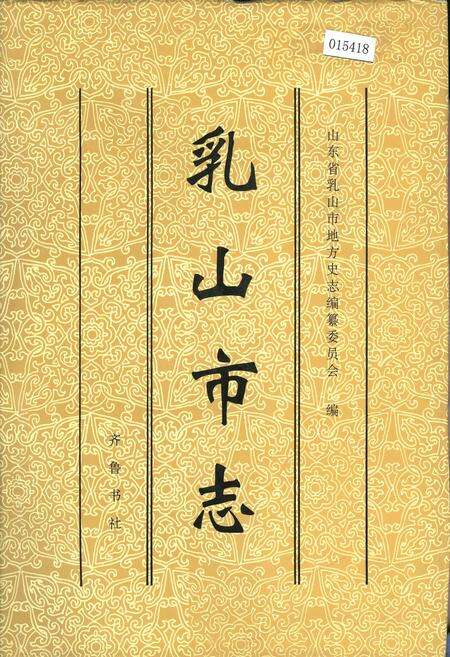 015418
山东省乳山市地方史志编纂委员会 编
乳山市志
齐鲁书社